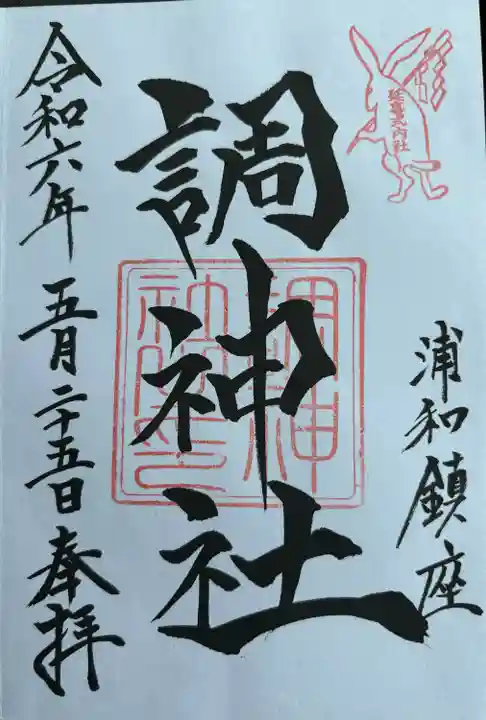 延喜式内社
浦和鎮座
調神社
令和六年 五月二十五日 奉拝